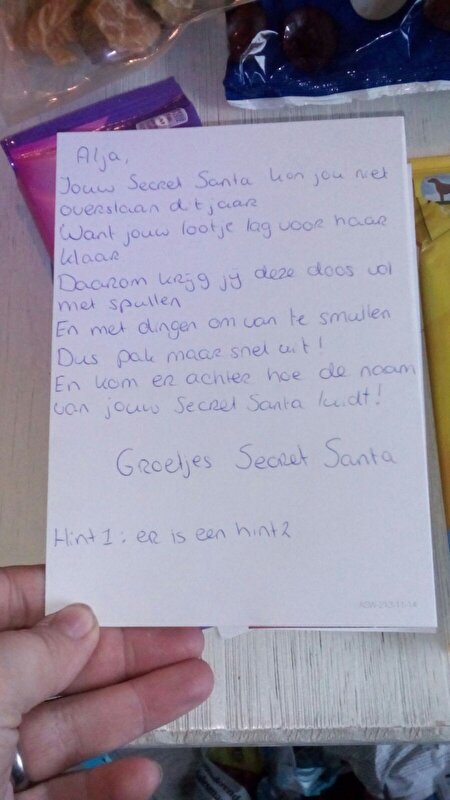 Alja,
Jouw Secret Santa kon jou niet
overslaan dit jaar
Want jouw lootje lag voor haar
klaar
Daarom krijg jij deze doos vol
met spullen
En met dingen om van te smullen
Dus pak maar snel uit!
En kom er achter hoe de naam
van jouw Secret Santa luidt!
Groetjes Secret Santa
Hint 1: er is een hint 2